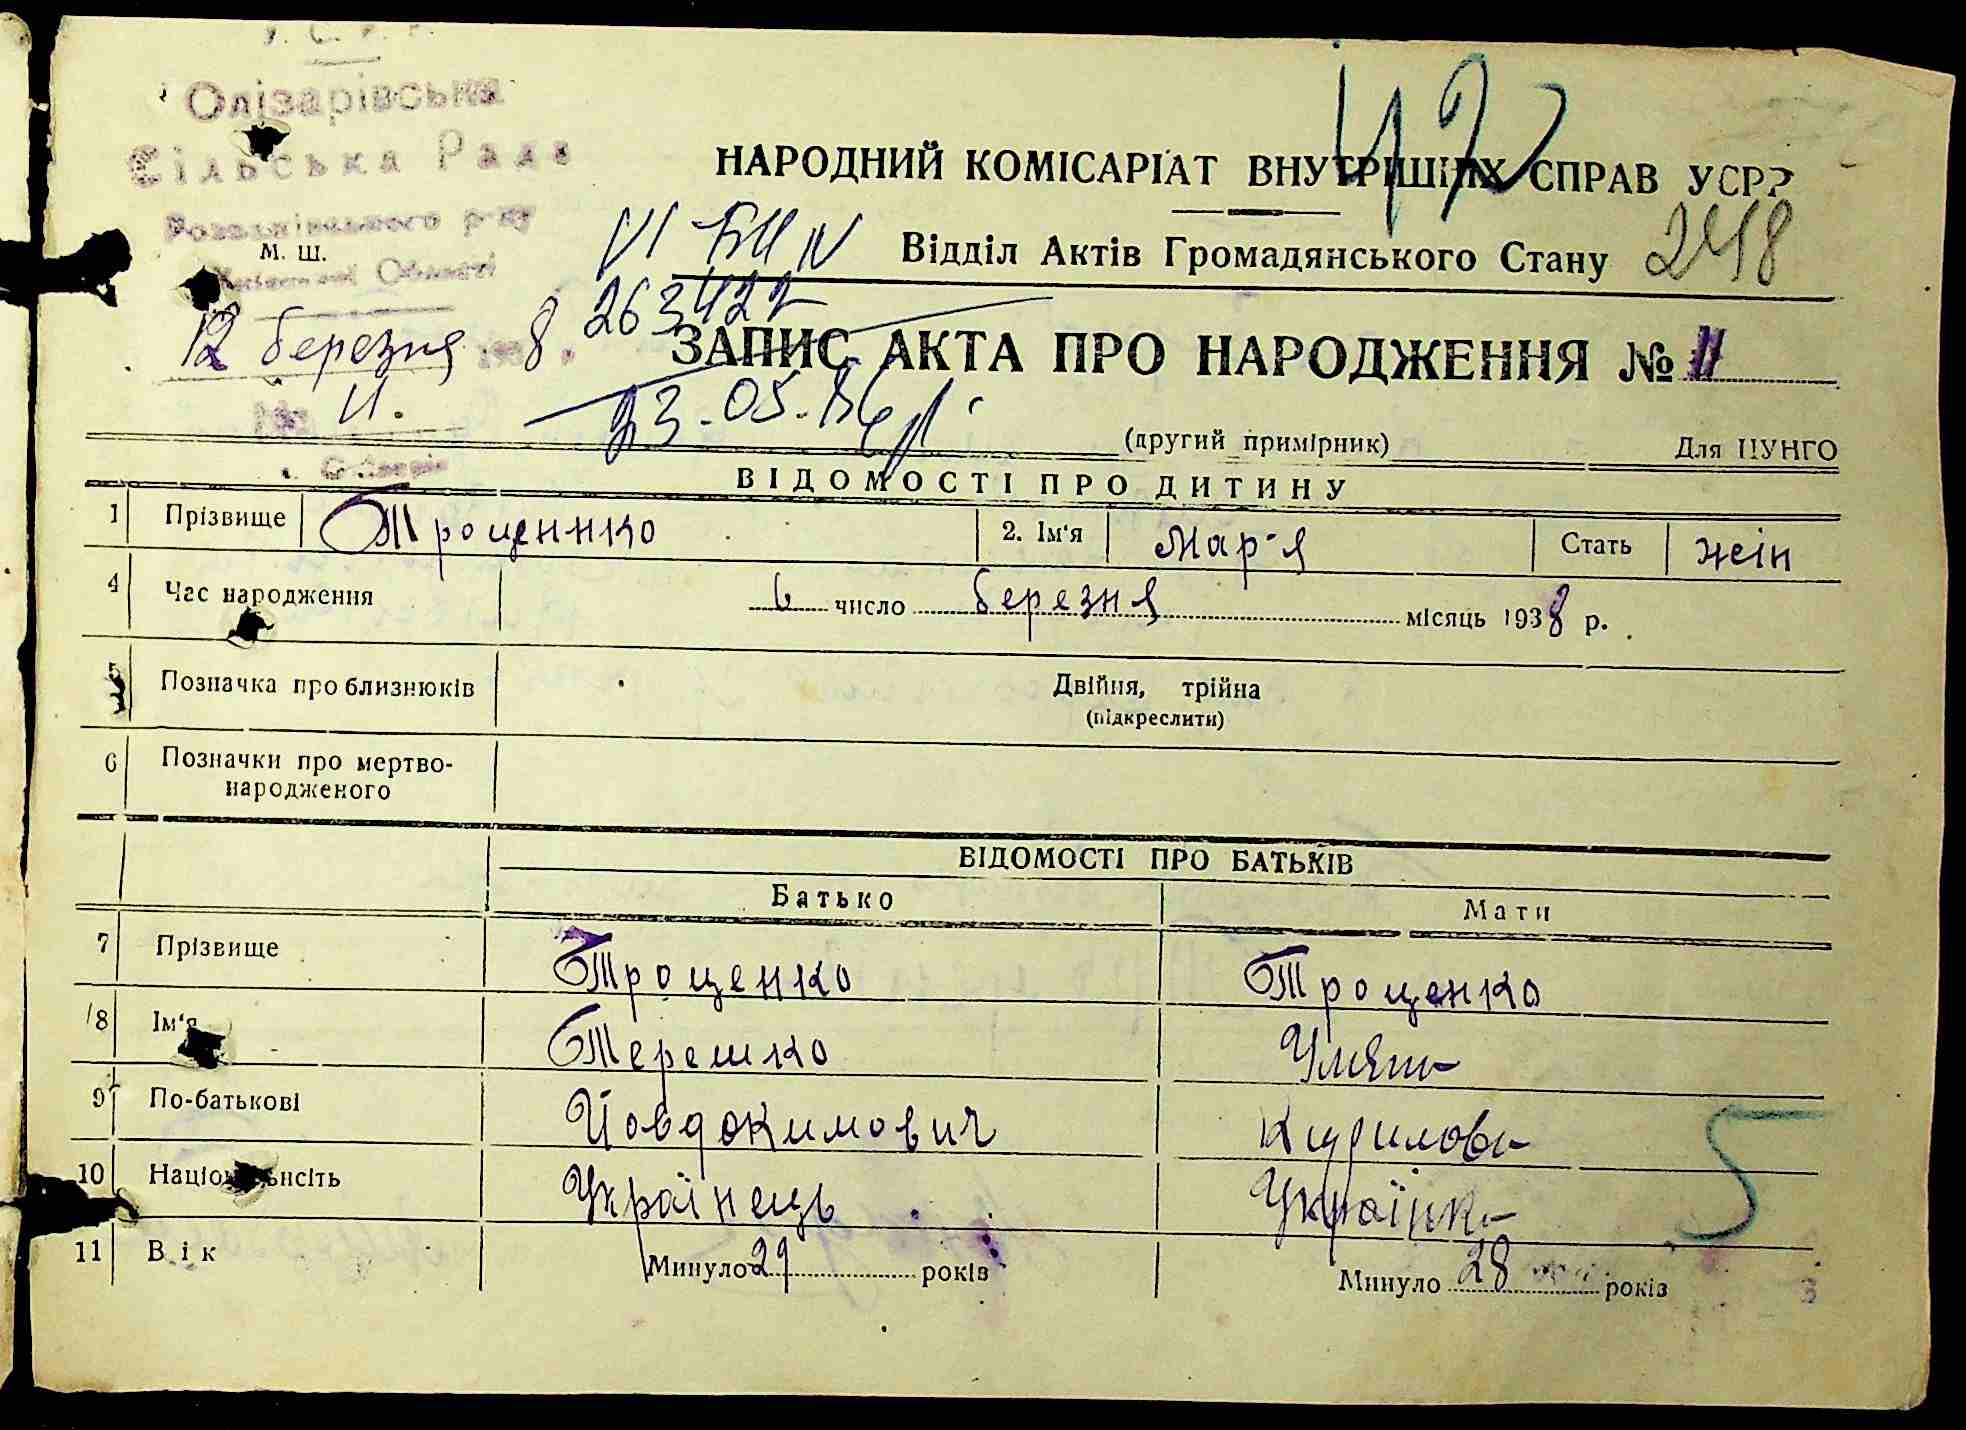 У. С. Р. Р.
Олізарівська
Сільська Рада
р-ну
М. Ш.
Області
12 березня 8.
11.
42
НАРОДНИЙ КОМІСАРІАТ ВНУТРІШНІХ СПРАВ УСРР
VI БК IV
Відділ Актів Громадянського Стану 248
263422
ЗАПИС АКТА ПРО НАРОДЖЕННЯ № 11
23.05.86
(другий примірник) Для ЦУНГО
ВІДОМОСТІ ПРО ДИТИНУ
1 Прізвище Троценнко 2. Ім'я Мар'я Стать жін
4 Час народження 6 число березня місяць 1938 р.
5 Позначка про близнюків Двійня, трійна
(підкреслити)
6 Позначки про мертво-
народженого
ВІДОМОСТІ ПРО БАТЬКІВ
Батько Мати
7 Прізвище Троценко Троценко
8 Ім'я Терешко
9 По-батькові Йовдокимович Кирилова
10 Національнсіть Українець Українка
11 Вік Минуло 29 років Минуло 28 років
5